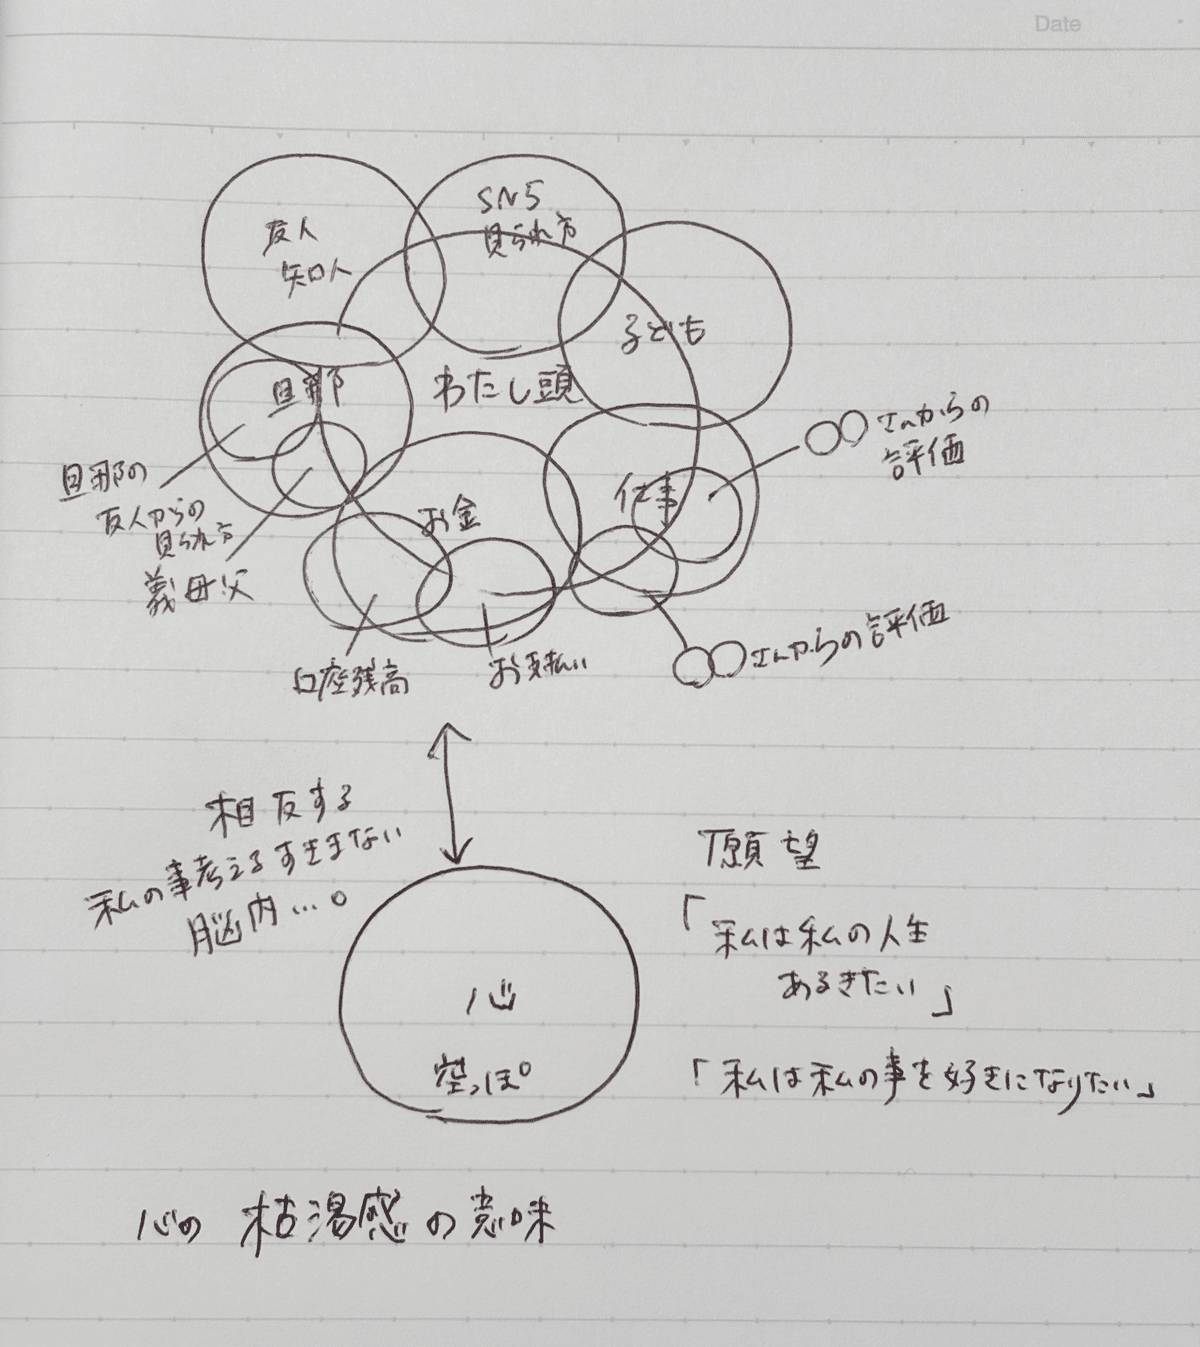 Date
友人
知人
SNS
見られ方
子ども
旦那
わたし頭
〇〇さんからの
評価
旦那の
友人からの
見られ方
義母父
お金
仕事
口座残高
お支払い
〇〇さんからの評価
相反する
私の事考えるすきまない
脳内…。
心
空っぽ
願望
「私は私の人生
あるきたい」
「私は私の事を好きになりたい」
心の枯渇感の意味